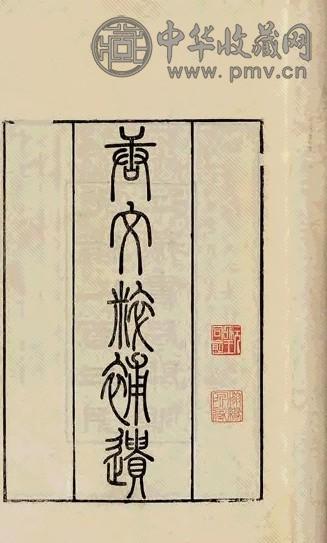 中华收藏网
www.pmv.cn
唐文粹補遺